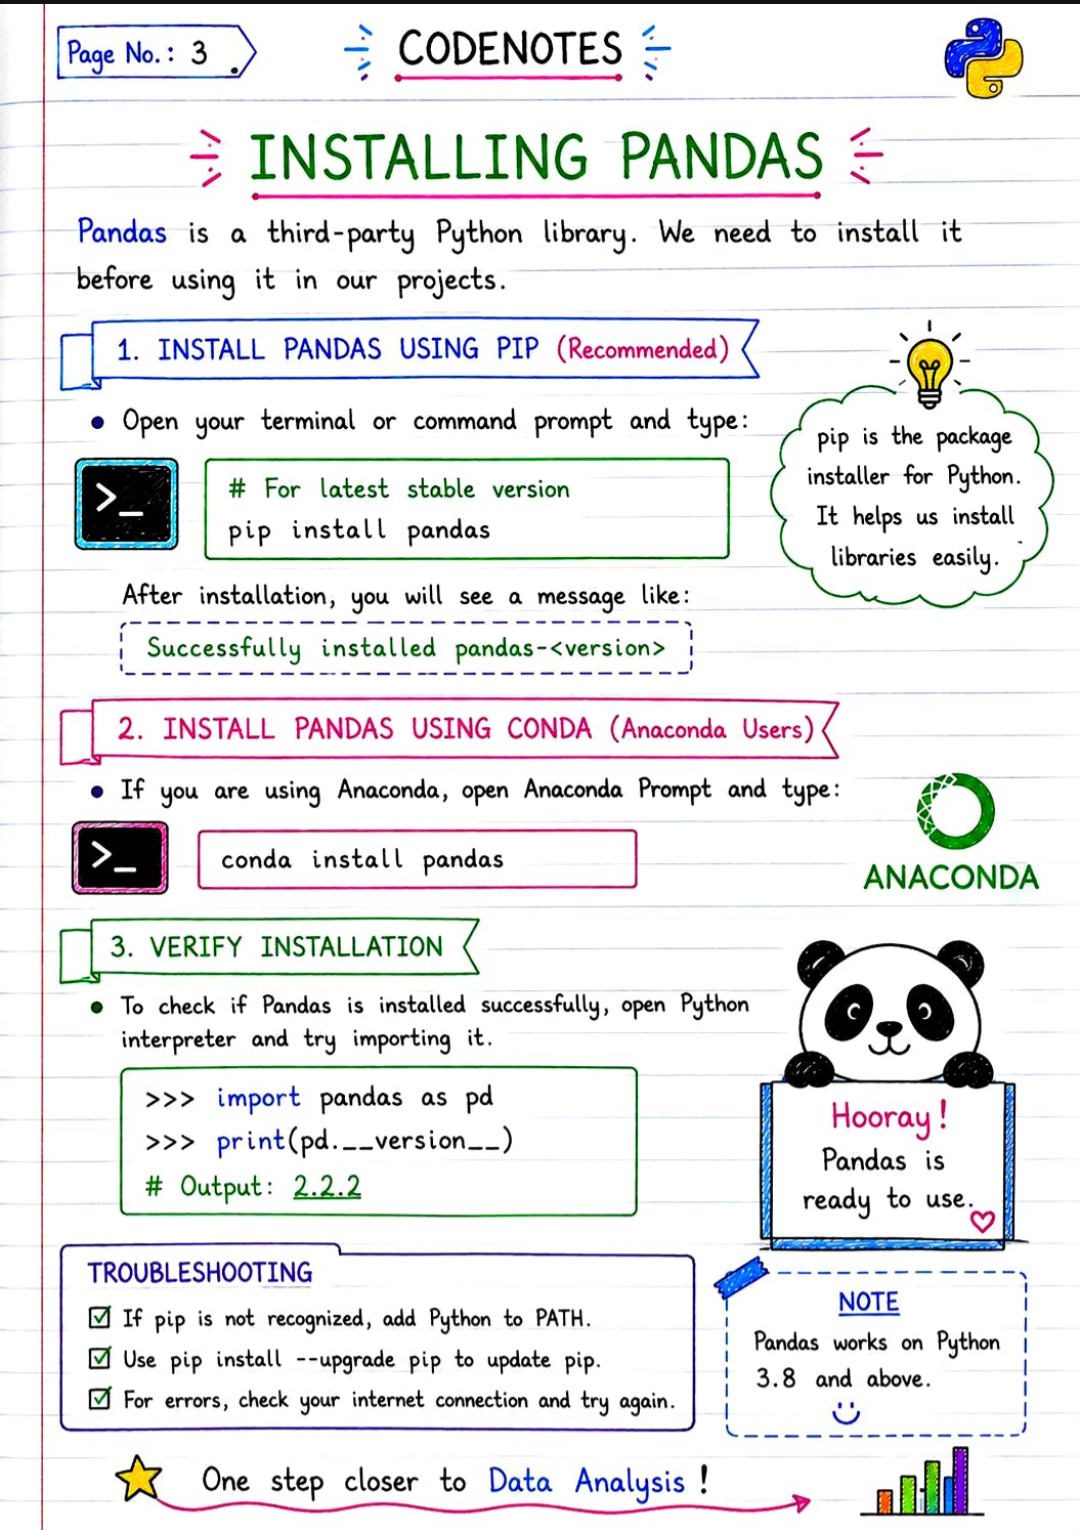 Page No.: 3
CODENOTES
INSTALLING PANDAS
Pandas is a third-party Python library. We need to install it
before using it in our projects.
1. INSTALL PANDAS USING PIP (Recommended)
• Open your terminal or command prompt and type:
>_
# For latest stable version
pip install pandas
pip is the package
installer for Python.
It helps us install
libraries easily.
After installation, you will see a message like:
Successfully installed pandas-<version>
2. INSTALL PANDAS USING CONDA (Anaconda Users)
• If you are using Anaconda, open Anaconda Prompt and type:
>_
conda install pandas
ANACONDA
3. VERIFY INSTALLATION
• To check if Pandas is installed successfully, open Python
interpreter and try importing it.
>>> import pandas as pd
>>> print(pd.__version__)
# Output: 2.2.2
Hooray!
Pandas is
ready to use.
TROUBLESHOOTING
☑ If pip is not recognized, add Python to PATH.
☑ Use pip install --upgrade pip to update pip.
☑ For errors, check your internet connection and try again.
NOTE
Pandas works on Python
3.8 and above.
One step closer to Data Analysis!